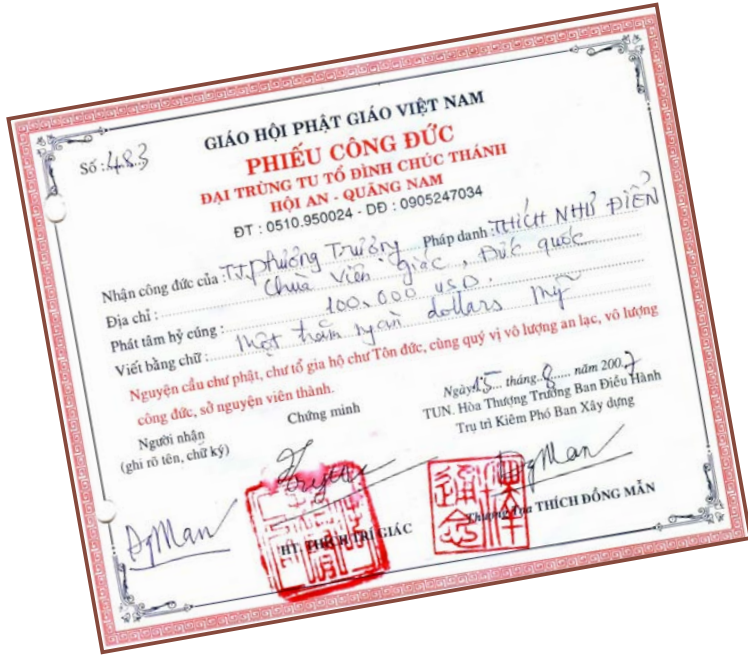 GIÁO HỘI PHẬT GIÁO VIỆT NAM
Số : 483
PHIẾU CÔNG ĐỨC
ĐẠI TRÙNG TU TỔ ĐÌNH CHÚC THÁNH
HỘI AN - QUẢNG NAM
ĐT : 0510.950024 - DĐ : 0905247034
Nhận công đức của : T.T. Phương Trượng Pháp danh : THÍCH NHƯ ĐIỂN
Địa chỉ : Chùa Viên Giác, Đức quốc
Phát tâm hỷ cúng : 100.000 USD.
Viết bằng chữ : Một trăm ngàn dollars Mỹ
Nguyện cầu chư phật, chư tổ gia hộ chư Tôn đức, cùng quý vị vô lượng an lạc, vô lượng
công đức, sở nguyện viên thành.
Ngày 15 tháng 8 năm 2007
Người nhận Chứng minh TUN. Hòa Thượng Trưởng Ban Điều Hành
(ghi rõ tên, chữ ký) Trụ trì Kiêm Phó Ban Xây dựng
ĐgMan ĐgMan
HT. THÍCH TRÍ GIÁC Thượng Tọa THÍCH ĐỒNG MẪN